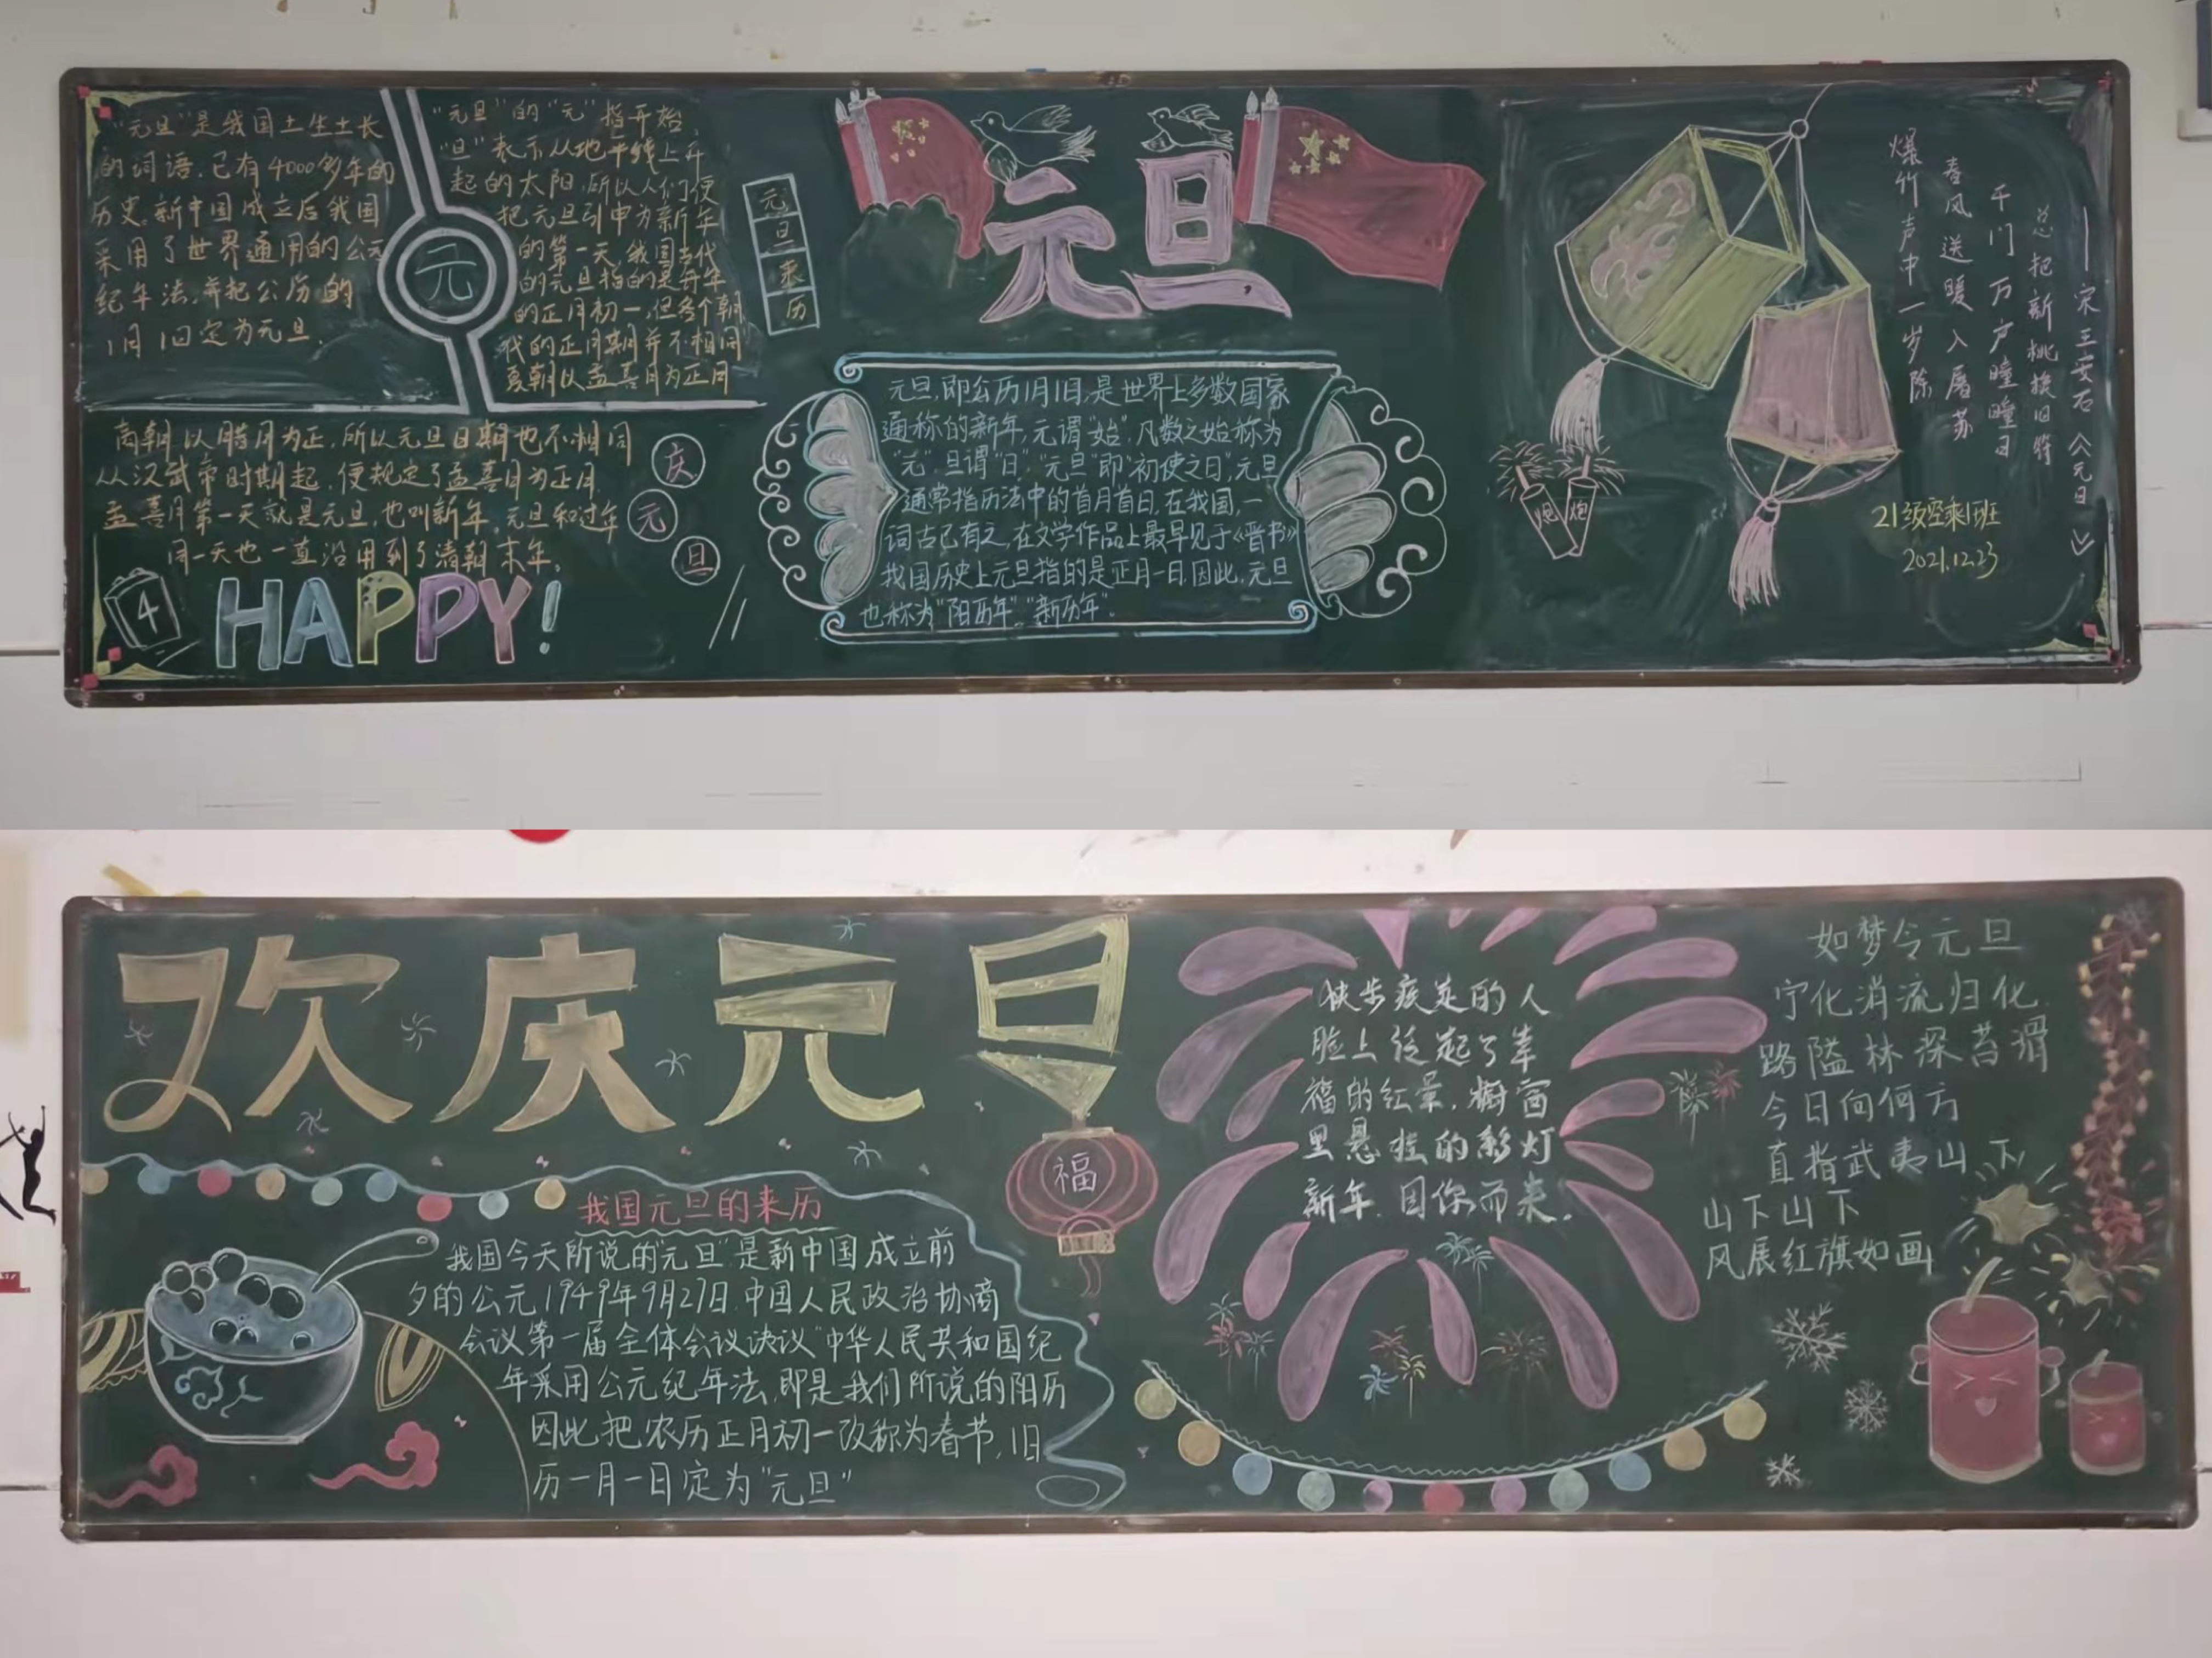 "元旦"是我国土生土长
的词语,已有4000多年的
历史。新中国成立后我国
采用了世界通用的公元
纪年法,并把公历的
1月1日定为元旦.
元
"元旦"的"元"指开始,
"旦"表示从地平线上升
起的太阳,所以人们便
把元旦引申为新年
的第一天,我国古代
的元旦指的是每年
的正月初一,但各个朝
代的正月期并不相同
夏朝以孟喜月为正月
商朝以腊月为正,所以元旦日期也不相同
从汉武帝时期起,便规定了孟喜月为正月
孟喜月第一天就是元旦,也叫新年,元旦和过年
同一天也一直沿用到了清朝末年。
庆
元
旦
4
HAPPY!
元旦来历
元旦
元旦,即公历1月1日,是世界上多数国家
通称的新年,元谓"始",凡数之始称为
"元",旦谓"日","元旦"即"初使之日",元旦
通常指历法中的首月首日,在我国,一
词古已有之,在文学作品上最早见于《晋书》
我国历史上元旦指的是正月一日,因此,元旦
也称为"阳历年""新历年".
爆竹声中一岁除
春风送暖入屠苏
千门万户瞳瞳日
总把新桃换旧符
——宋王安石《元日》
炮
炮
21级空乘1班
2021.12.23
欢庆元旦
福
我国元旦的来历
我国今天所说的"元旦"是新中国成立前
夕的公元1949年9月27日.中国人民政治协商
会议第一届全体会议决议"中华人民共和国纪
年采用公元纪年法,即是我们所说的阳历
因此把农历正月初一改称为春节,旧
历一月一日定为"元旦"
步疾走的人
脸上泛起了幸
福的红晕,橱窗
里悬挂的彩灯
新年.因你而来.
如梦令元旦
宁化消流归化
路隘林深苔滑
今日向何方
直指武夷山下
山下山下
风展红旗如画